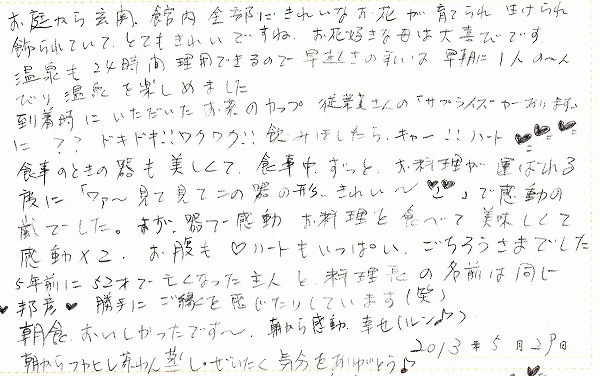 お庭から玄関、館内 全部にきれいなお花が育てられ 生けられ
飾られていて、とてもきれいですね。お花好きな母は大喜びです
温泉も24時間 理用できるので 早起きの私は 早朝に1人の〜ん
びり 温泉を楽しめました
到着時に いただいたお茶のカップ 従業員さんの「サプライズが〜あります」
に ?? ドキドキ!!ワクワク!! 飲みほしたら、キャー!!ハート ♥♥♥
食事のときの器も美しくて、食事中、ずっと、お料理が 運ばれる
度に「ワァ〜見て見てこの器の形、きれい〜♥♥」で感動の
嵐でした。まず、器で感動 お料理を食べて 美味しくて
感動×2、お腹も ♡ハートもいっぱい、ごちそうさまでした
5年前に52才で亡くなった主人と、料理長の名前は同じ
♥邦彦♥ 勝手にご縁を感じたりしています(笑)
朝食、おいしかったです〜、朝から感動、幸せ(ルン♪)
朝からフカヒレ茶わん蒸し・ぜいたく 気分をありがとう♪
2013年5月29日